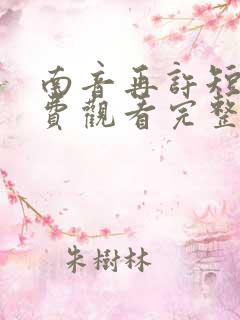 南音再許短
費觀看完整
朱樹林